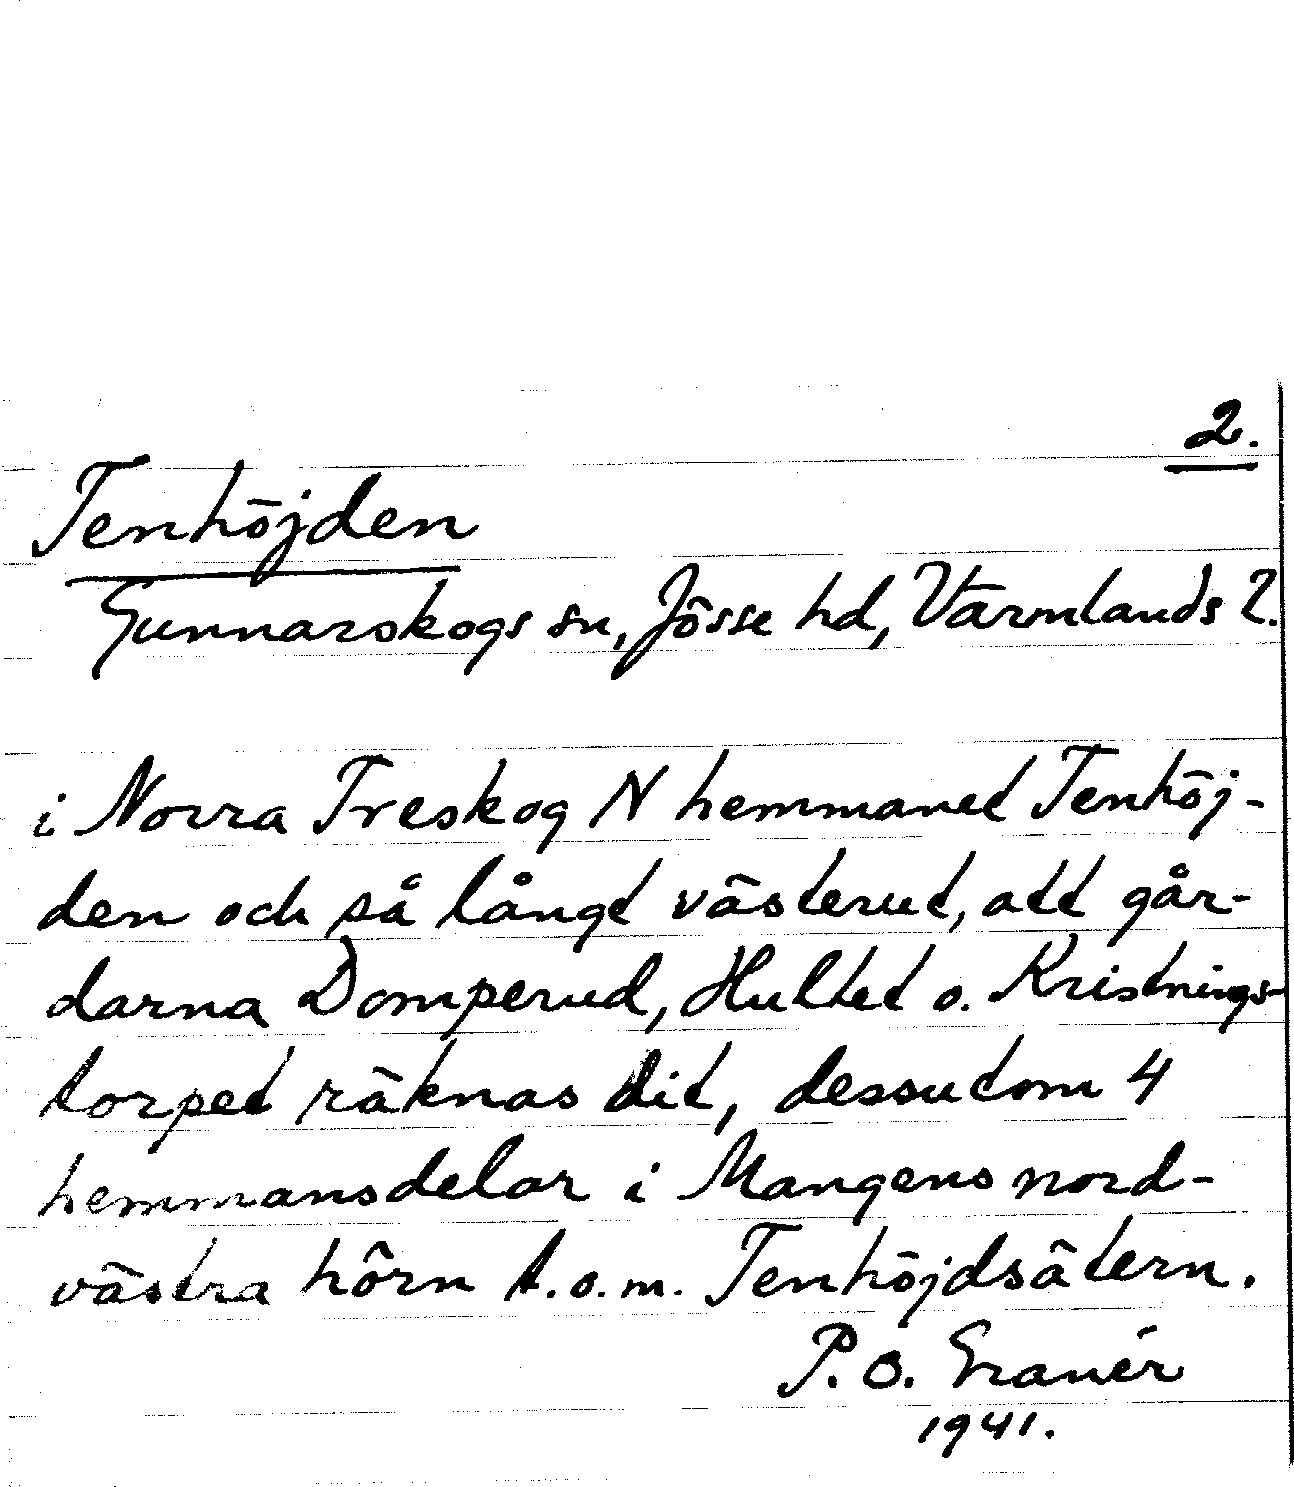 2.
Tenhöjden
Gunnarskogs sn, Jösse hd, Värmlands l.
i Norra Treskog N hemmanet Tenhöj-
den och så långt västerut, att går-
darna Domperud, Hultet o. Kristnings-
torpet räknas dit, dessutom 4
hemmansdelar i Mangens nord-
västra hörn t.o.m. Tenhöjdsätern.
P. O. Granér
1941.